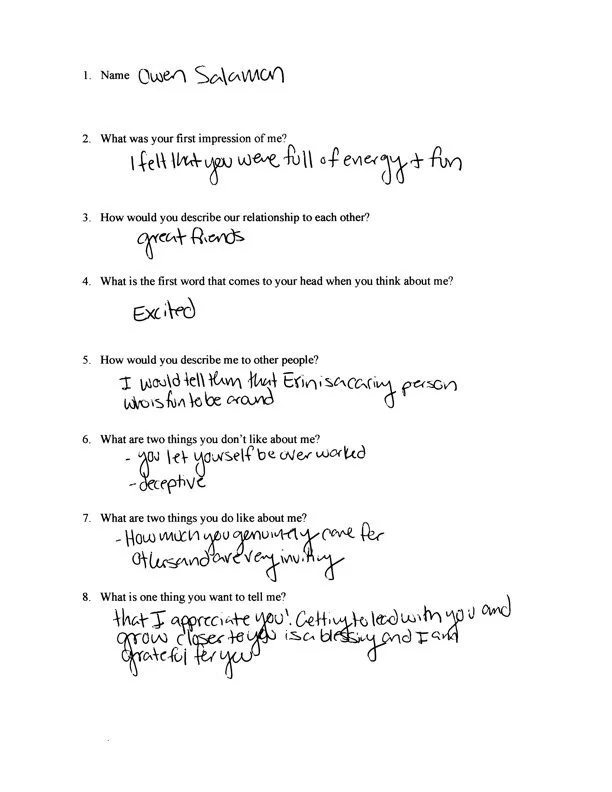 1. Name Owen Salamon
2. What was your first impression of me?
I felt that you were full of energy + fun
3. How would you describe our relationship to each other?
great friends
4. What is the first word that comes to your head when you think about me?
Excited
5. How would you describe me to other people?
I would tell them that Erin is a caring person
who is fun to be around
6. What are two things you don't like about me?
- you let yourself be over worked
- deceptive
7. What are two things you do like about me?
- How much you genuinely care for
others and are very inviting
8. What is one thing you want to tell me?
that I appreciate you! Getting to lead with you and
grow closer to you is a blessing and I am
grateful for you